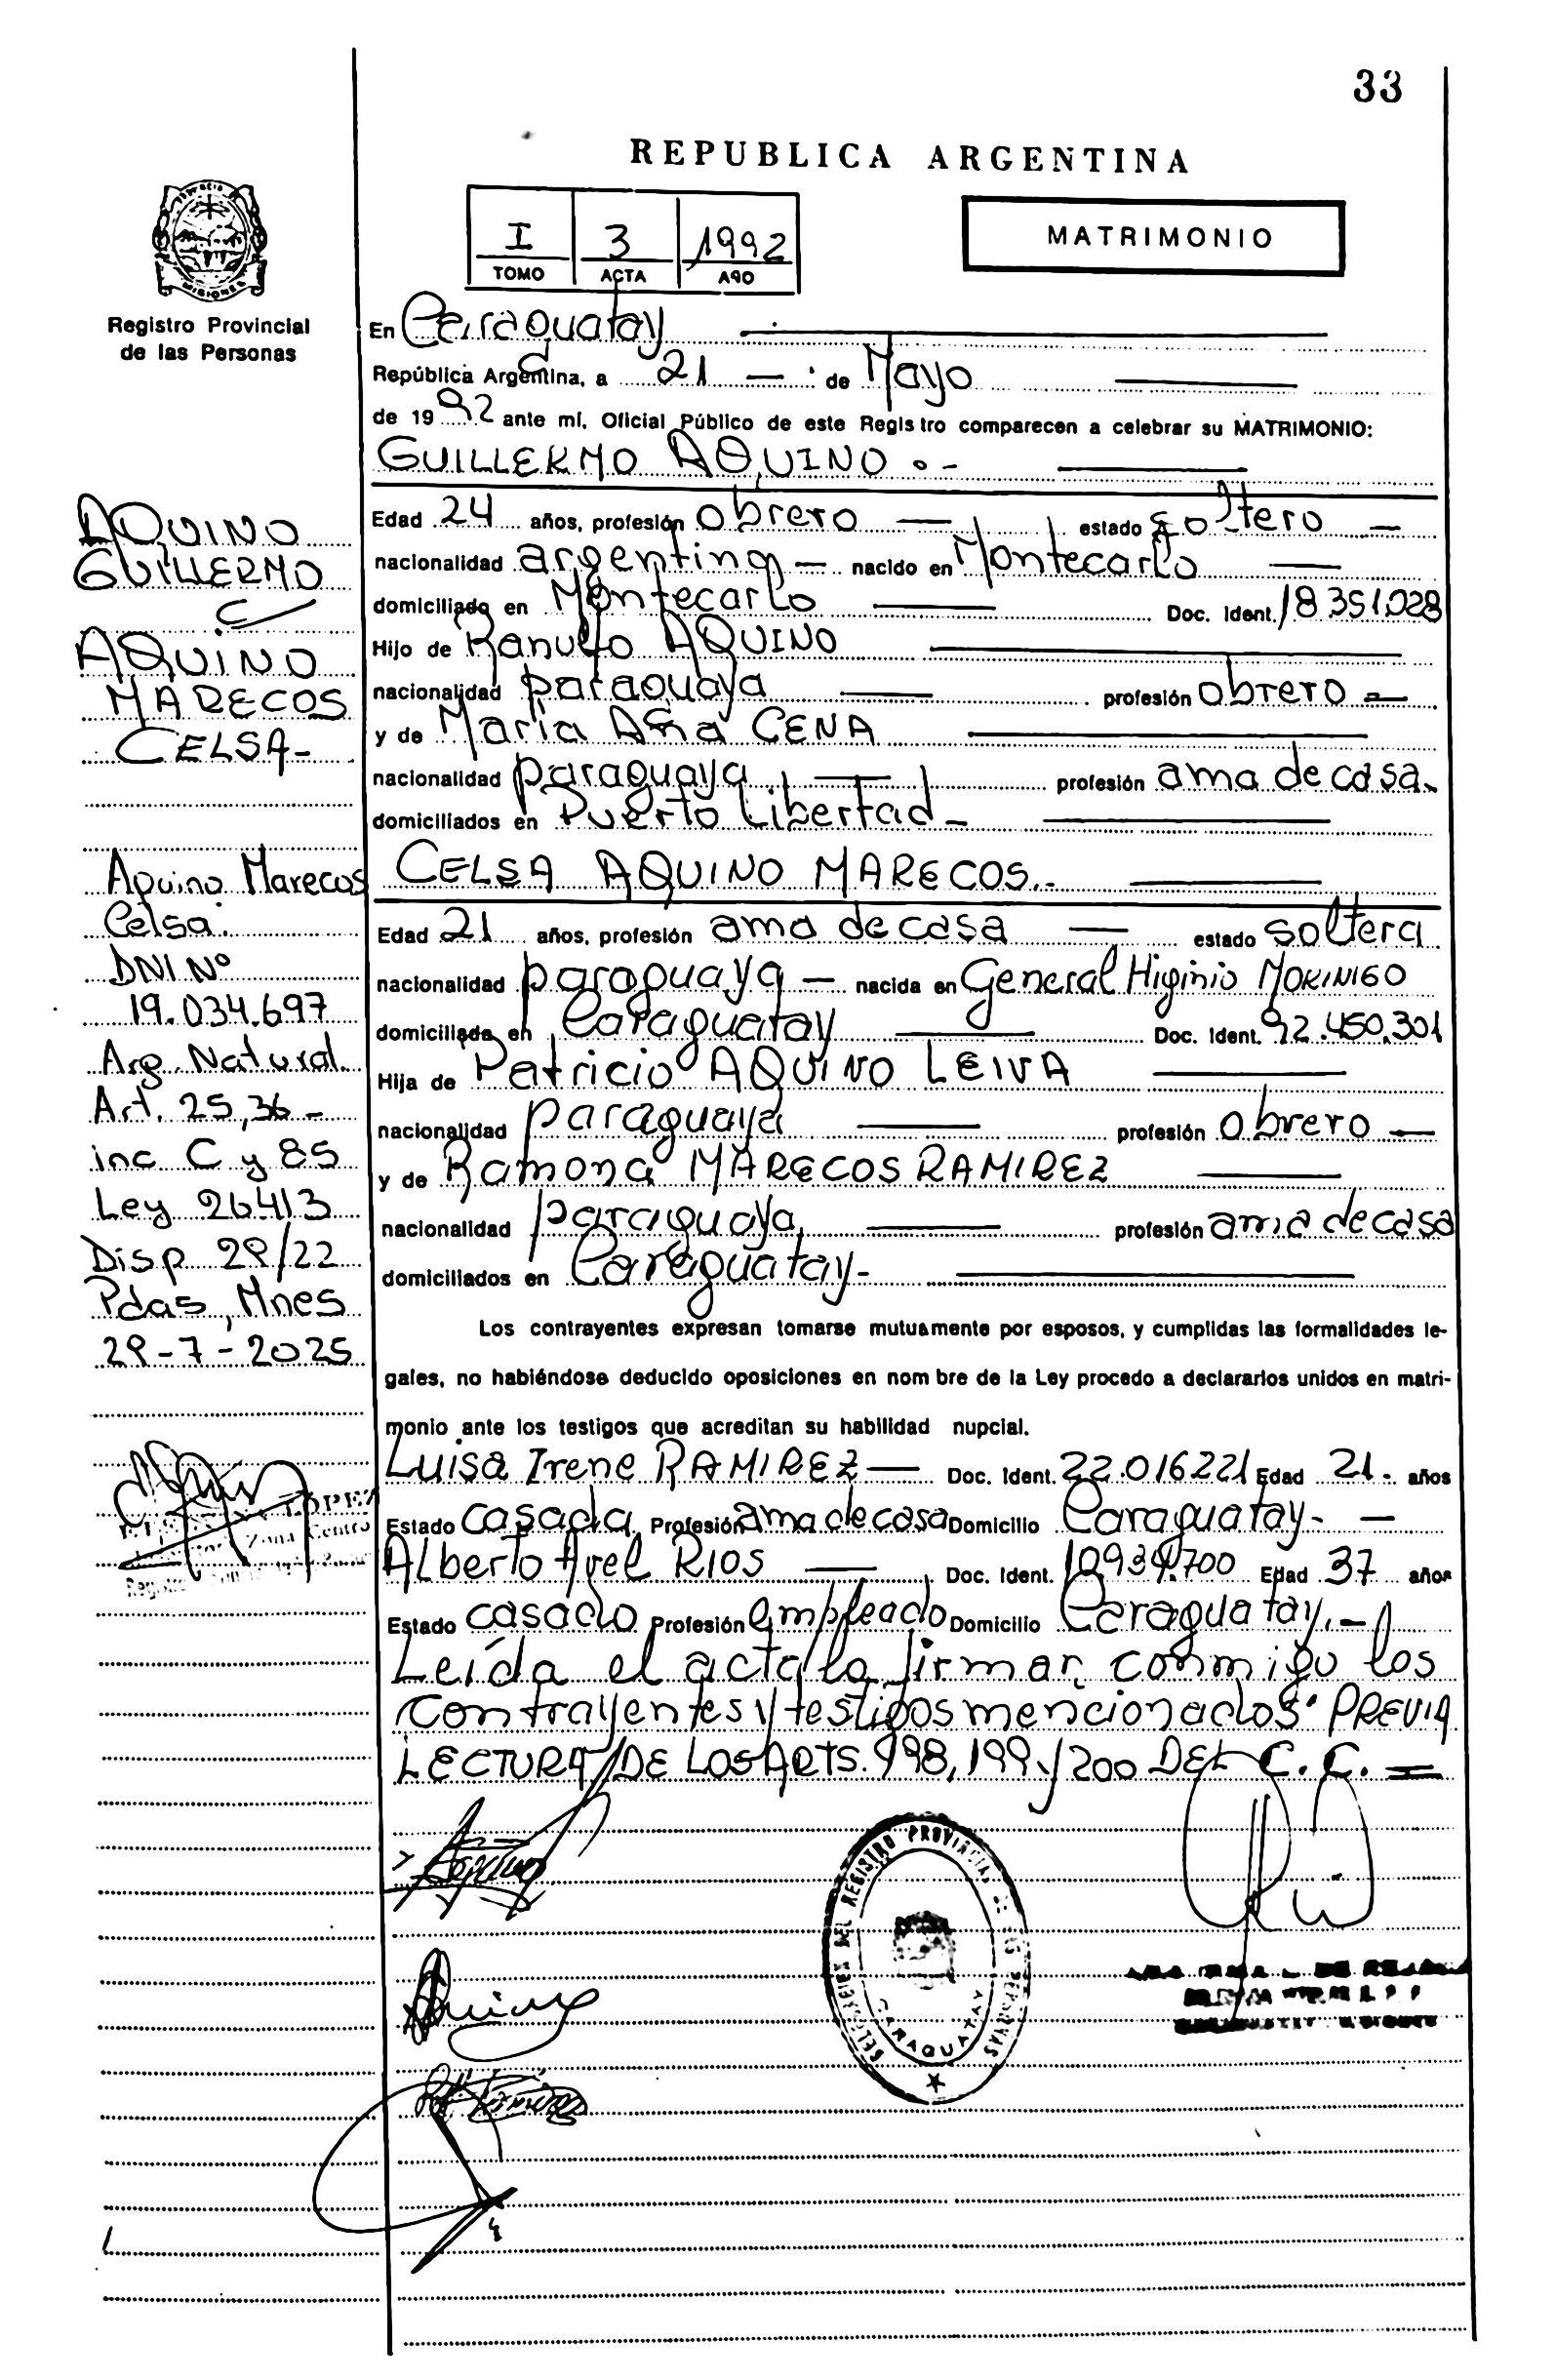 33
REPUBLICA ARGENTINA
I 3 1992
TOMO ACTA AÑO
MATRIMONIO
MISIONES
Registro Provincial
de las Personas
En Caraguatay
República Argentina, a 21 de Mayo
de 1992 ante mí, Oficial Público de este Registro comparecen a celebrar su MATRIMONIO:
GUILLERMO AQUINO.-
Edad 24 años, profesión obrero estado soltero
nacionalidad argentina nacido en Montecarlo
domiciliado en Montecarlo Doc. Ident. 18.351.028
Hijo de Ranulfo AQUINO
nacionalidad paraguaya profesión obrero
y de María Ana CENA
nacionalidad paraguaya profesión ama de casa.
domiciliados en Puerto Libertad-
CELSA AQUINO MARECOS.-
Edad 21 años, profesión ama de casa estado soltera
nacionalidad paraguaya nacida en General Higinio MORINIGO
domiciliada en Caraguatay Doc. Ident. 92.450.301
Hija de Patricio AQUINO LEIVA
nacionalidad paraguaya profesión obrero
y de Ramona MARECOS RAMIREZ
nacionalidad paraguaya profesión ama de casa
domiciliados en Caraguatay-
Los contrayentes expresan tomarse mutuamente por esposos, y cumplidas las formalidades le-
gales, no habiéndose deducido oposiciones en nombre de la Ley procedo a declararlos unidos en matri-
monio ante los testigos que acreditan su habilidad nupcial.
Luisa Irene RAMIREZ Doc. Ident. 22.016221 Edad 21. años
Estado casada Profesión ama de casa Domicilio Caraguatay-
Alberto RIOS Doc. Ident. 10.939.700 Edad 37 años
Estado casado Profesión empleado Domicilio Caraguatay.-
Leída el acta la firman conmigo los
contrayentes y testigos mencionados. PREVIA
LECTURA DE LOS ARTS. 198, 199 y 200 DEL C. C.
AQUINO
GUILLERMO
c
AQUINO
MARECOS
CELSA-
Aquino Marecos
Celsa.
DNI Nº
19.034.697
Arg. Natural.
Art. 25,36-
inc C y 85
Ley 26413
Disp 29/22
Pdas, Mnes
29-7-2025
LOPEZ
Zona Centro
DEL REGISTRO PROVINCIAL DE LAS PERSONAS
CARAGUATAY